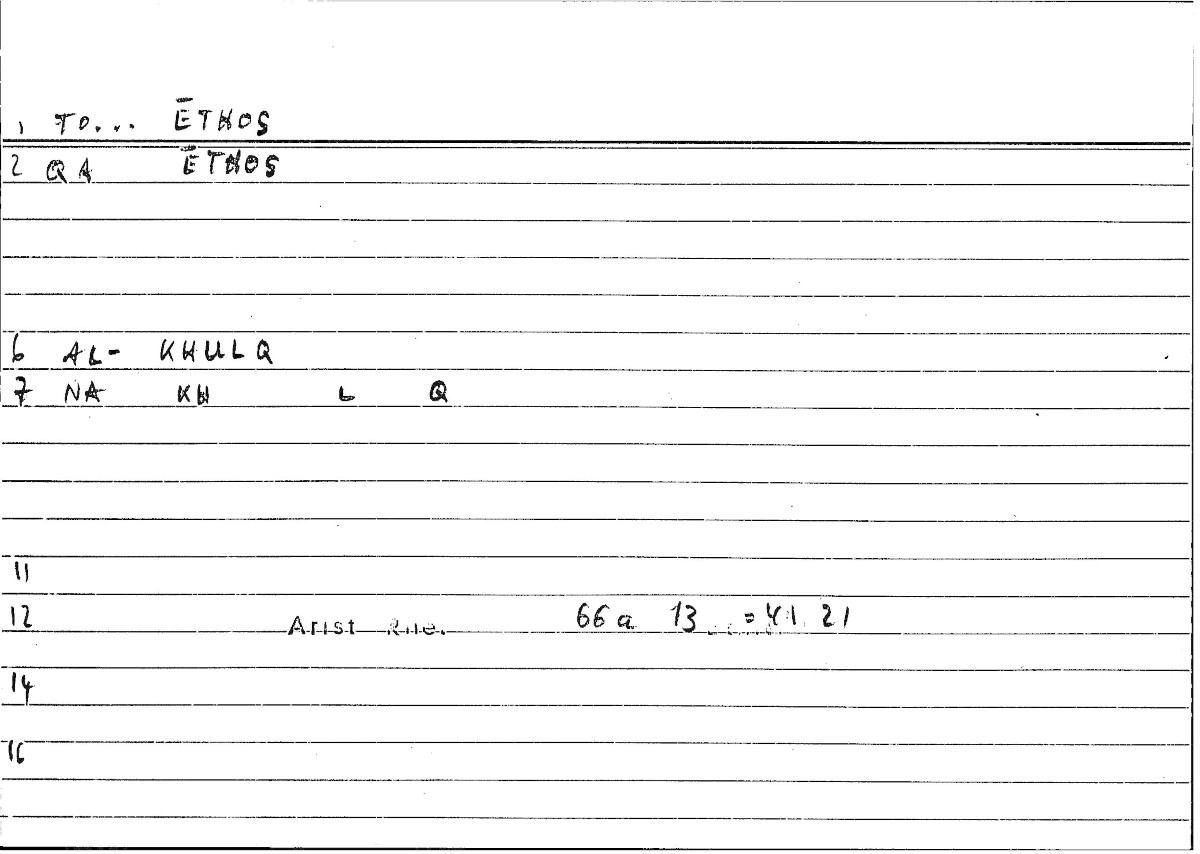 1 TO... ĒTHOS
2 QA ĒTHOS
6 AL- KHULQ
7 NA KH L Q
11
12 Arist Rhe. 66a 13 = 41 21
14
16